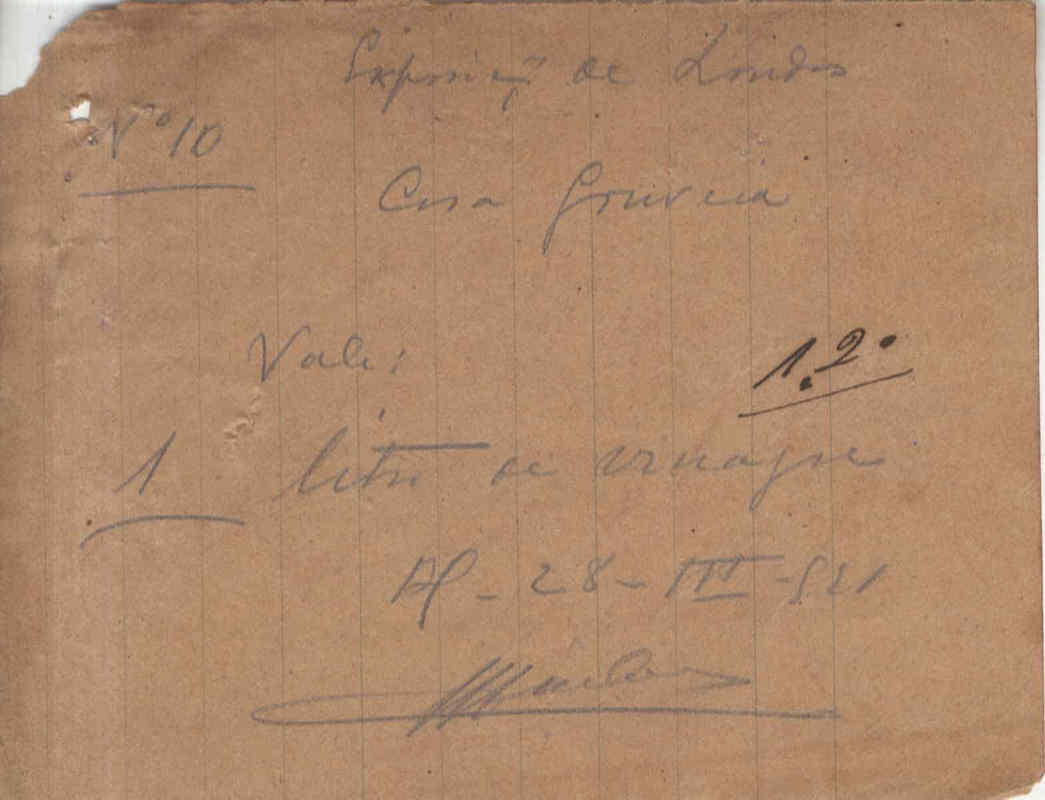 Exposição de Londres
Nº 10
Casa Gouveia
Vale:
1.2º
1 litro de vinagre
28-III-921